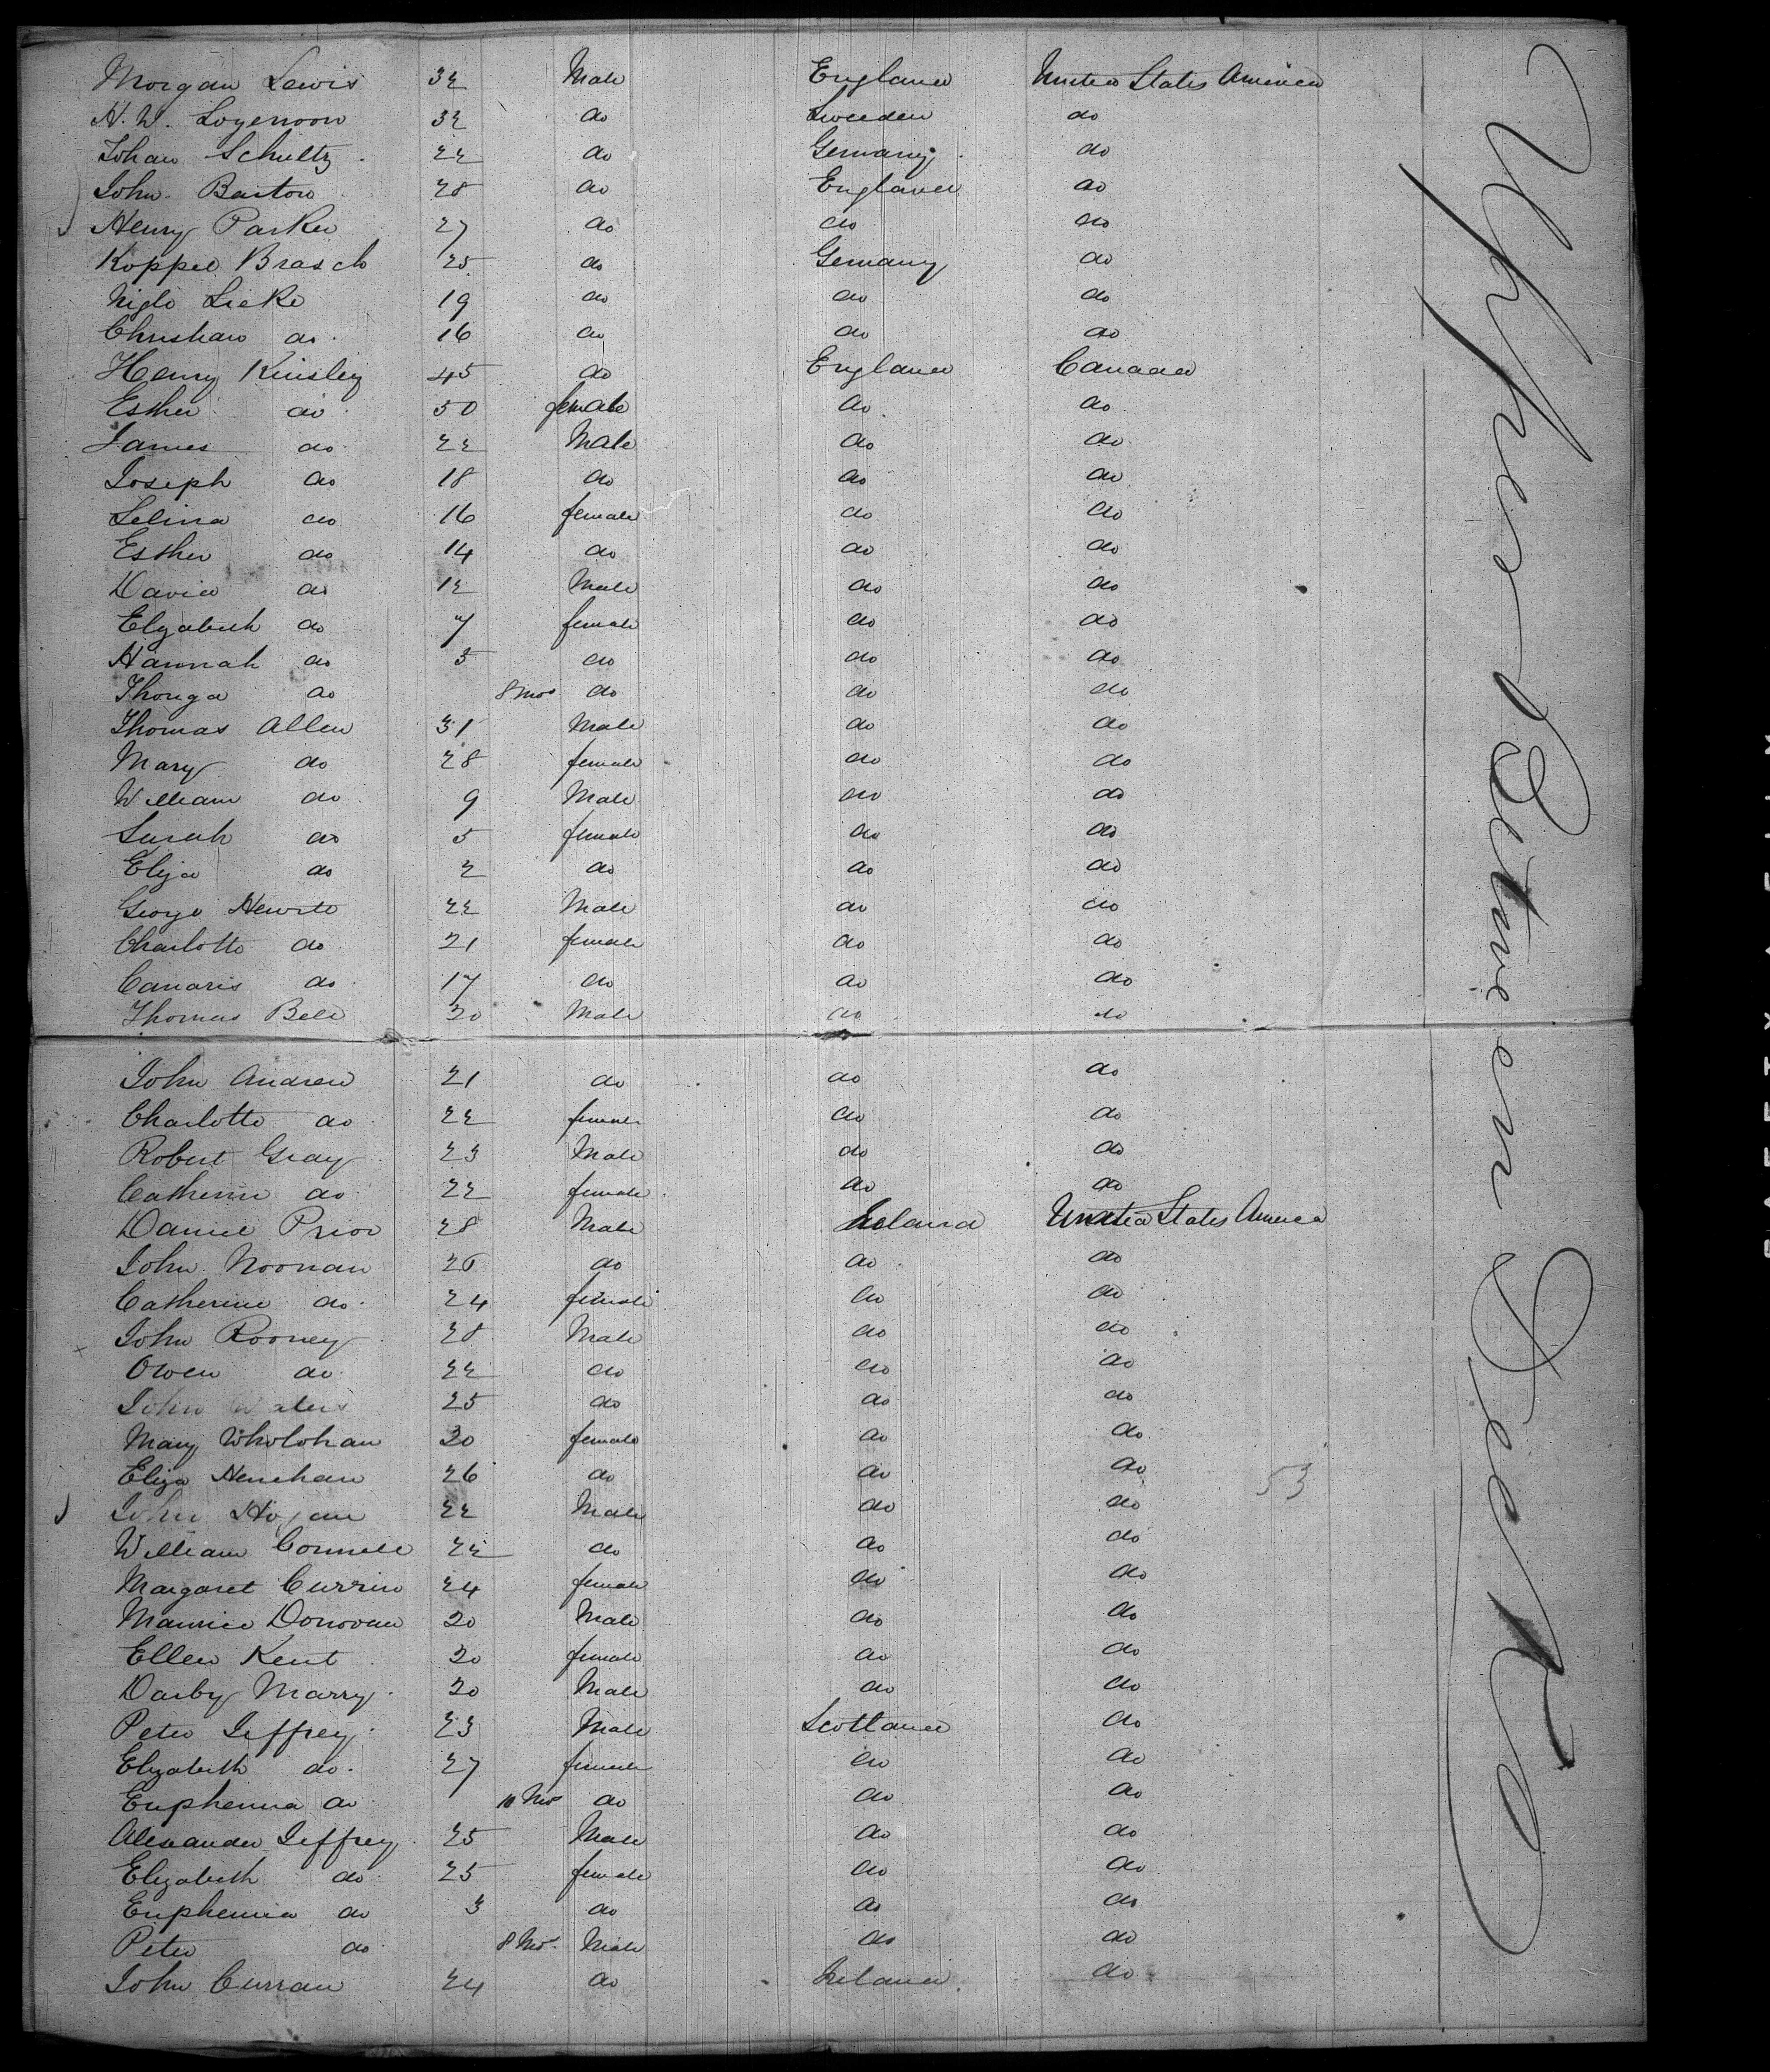 Morgan Lewis 32 Male England United States America
H. W. 32 do Sweeden do
Johan Schultz 22 do Gemany do
John Barton 28 do England do
Henry Parker 27 do do do
Koppel Brasch 25 do Gemany do
Lieke 19 do do do
Christian do 16 do do do
Henry Kinsley 45 do England Canada
Esther do 50 female do do
James do 22 Male do do
Joseph do 18 do do do
Selina do 16 female do do
Esther do 14 do do do
David do 12 Male do do
Elizabeth do 7 female do do
Hannah do 5 do do do
do 8 mos do do do
Thomas Allen 31 Male do do
Mary do 28 female do do
William do 9 Male do do
Sarah do 5 female do do
Eliza do 2 do do do
George 22 Male do do
Charlotte do 21 female do do
do 17 do do do
Thomas Bell 20 Male do do
John Andrew 21 do do do
Charlotte do 22 female do do
Robert Gray 23 Male do do
Catherine do 22 female do do
Daniel Prior 28 Male Ireland United States America
John Noonan 26 do do do
Catherine do 24 female do do
John Rooney 28 Male do do
Owen do 22 do do do
John Waters 25 do do do
Mary Wholohan 20 female do do
Eliza Henehan 26 do do do
53
John Hogan 22 Male do do
William Connell 22 do do do
Margaret Currin 24 female do do
Maurice Donovan 20 Male do do
Ellen Kent 20 female do do
Darby Marry 20 Male do do
Peter Jeffrey 23 Male Scotland do
Elizabeth do 27 female do do
Euphemia do 10 Mos do do do
Alexander Jeffrey 25 Male do do
Elizabeth do 25 female do do
Euphemia do 3 do do do
Peter do 8 Mos Male do do
John Curran 24 do Ireland do
Upper Between Deck